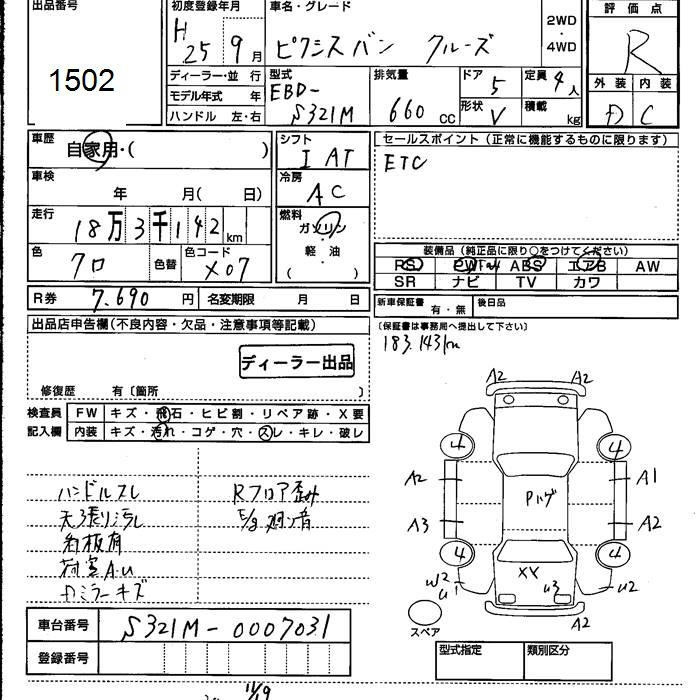 出品番号
1502
初度登録年月
H 25年 9月
車名・グレード
ピクシスバン クルーズ
2WD
・
4WD
評価点
R
ディーラー・並行
モデル年式 年
ハンドル 左・右
型式
EBD-
S321M
排気量
660 cc
ドア
5
形状
V
定員
4人
積載
kg
外装 内装
D C
車歴
自家用・( )
車検
年 月( 日)
走行
18万3千142km
色
クロ
色替
色コード
X07
R券 7,690円
名変期限 月 日
シフト
I AT
冷房
AC
燃料
ガソリン
・
軽・油
( ・ )
セールスポイント(正常に機能するものに限ります)
ETC
装備品(純正品に限り○をつけてください)
PS PW ABS エアB AW
SR ナビ TV カワ
新車保証書 有・無
後日品
(保証書は事務局へ提出して下さい)
183,143km
出品店申告欄(不良内容・欠品・注意事項等記載)
ディーラー出品
修復歴 有〔箇所 〕
検査員 FW キズ・飛石・ヒビ割・リペア跡・X要
記入欄 内装 キズ・汚れ・コゲ・穴・スレ・キレ・破レ
ハンドルスレ
天張り汚レ
看板有
荷室A.U
Dミラーキズ
Rフロア歪み
E/g 廻り音
A2 A2
4 4
A2 A1
Pハゲ
A3 A2
4 4
W2
U1
XX
U3
U2
A2
スペア
車台番号 S321M-0007031
登録番号
型式指定 類別区分
11/19